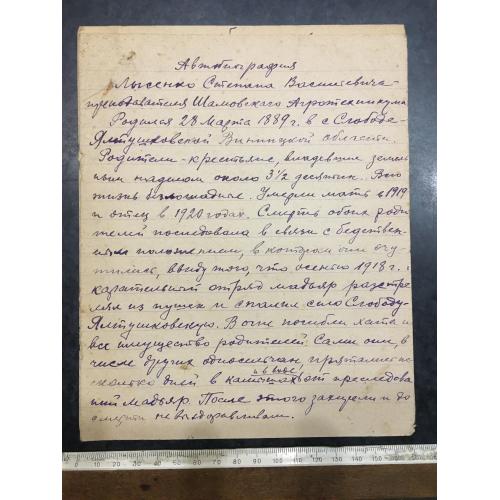 Автобиография
Лысенко Степана Васильевича -
преподавателя Шамовского Агротехникума
Родился 28 Марта 1889 г. в с Слободе-
Ялтушковской Винницкой области.
Родители - крестьяне, владевшие земель
ным наделом около 3½ десятин. Всю
жизнь безлошадные. Умерли мать в 1919
и отец в 1920 годах. Смерть обоих роди
телей последовала в связи с бедствен-
ным положением, в котором они очу-
тились, ввиду того, что осенью 1918 г.
карательный отряд мадьяр расстре
лял из пушек и спалил село Слободу-
Ялтушковскую. В огне погибли хата и
все имущество родителей. Сами они, в
числе других односельчан, прятались не
сколько дней в камышах от преследова
ний мадьяр. После этого захирели и до
смерти не выздоравливали.
0 10 20 30 40 50 60 70 80 90 100 110 120 130 140 150